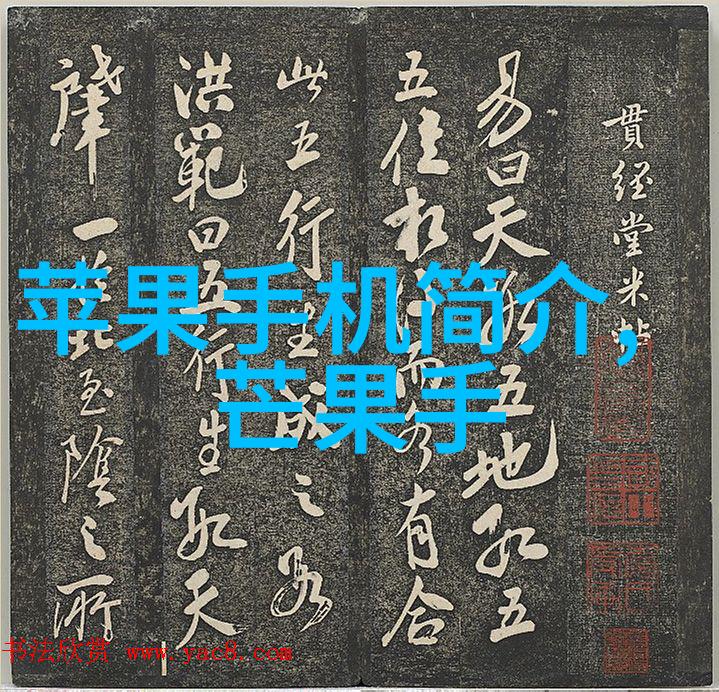 苹果手机简介,
芒果手
貫經堂米帖
易曰天數五地數五
五位相得而各有合
此五行生成之數
洪範曰五行生數天
一 至陰之所
书法欣赏 www.yac8.com